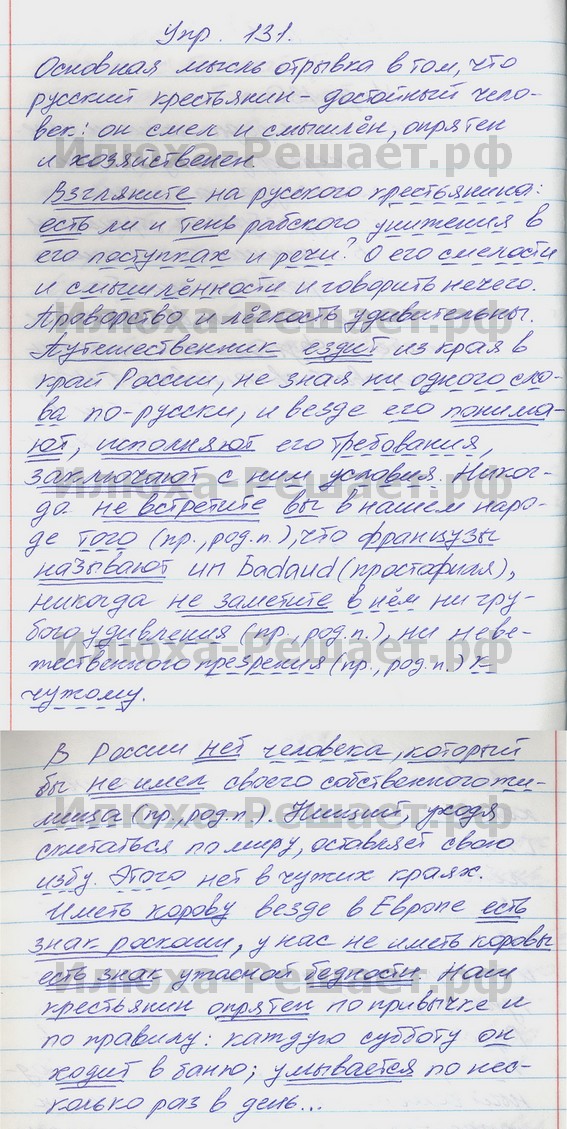 Упр. 131.
Основная мысль отрывка в том, что
русский крестьянин - достойный чело-
век: он смел и смышлён, опрятен
и хозяйственен.
Взгляните на русского крестьянина:
есть ли и тень рабского унижения в
его поступках и речи? О его смелости
и смышлённости и говорить нечего.
Проворство и лёгкость удивительны.
Путешественник ездит из края в
край России, не зная ни одного сло-
ва по-русски, и везде его понима-
ют, исполняют его требования,
заключают с ним условия. Никог-
да не встретите вы в нашем наро-
де того (пр., род.п.), что французы
называют un badaud (простофиля),
никогда не заметите в нём ни гру-
бого удивления (пр., род.п.), ни неве-
жественного презрения (пр., род.п.) к
чужому.
В России нет человека, который
бы не имел своего собственного жи-
лища (пр., род.п.). Нищий, уходя
скитаться по миру, оставляет свою
избу. Этого нет в чужих краях.
Иметь корову везде в Европе есть
знак роскоши, у нас не иметь коровы
есть знак ужасной бедности. Наш
крестьянин опрятен по привычке и
по правилу: каждую субботу он
ходит в баню; умывается по нес-
колько раз в день...
Илюха-Решает.рф
Илюха-Решает.рф
Илюха-Решает.рф
Илюха-Решает.рф
Илюха-Решает.рф
Илюха-Решает.рф